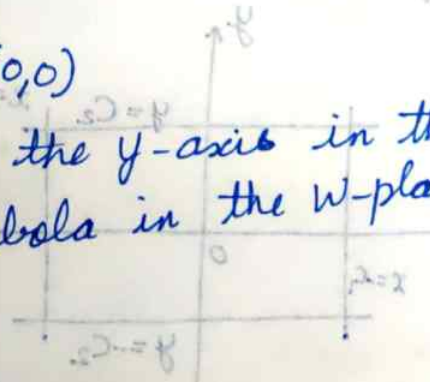 0,0)
the y-axis in th
bola in the W-pla